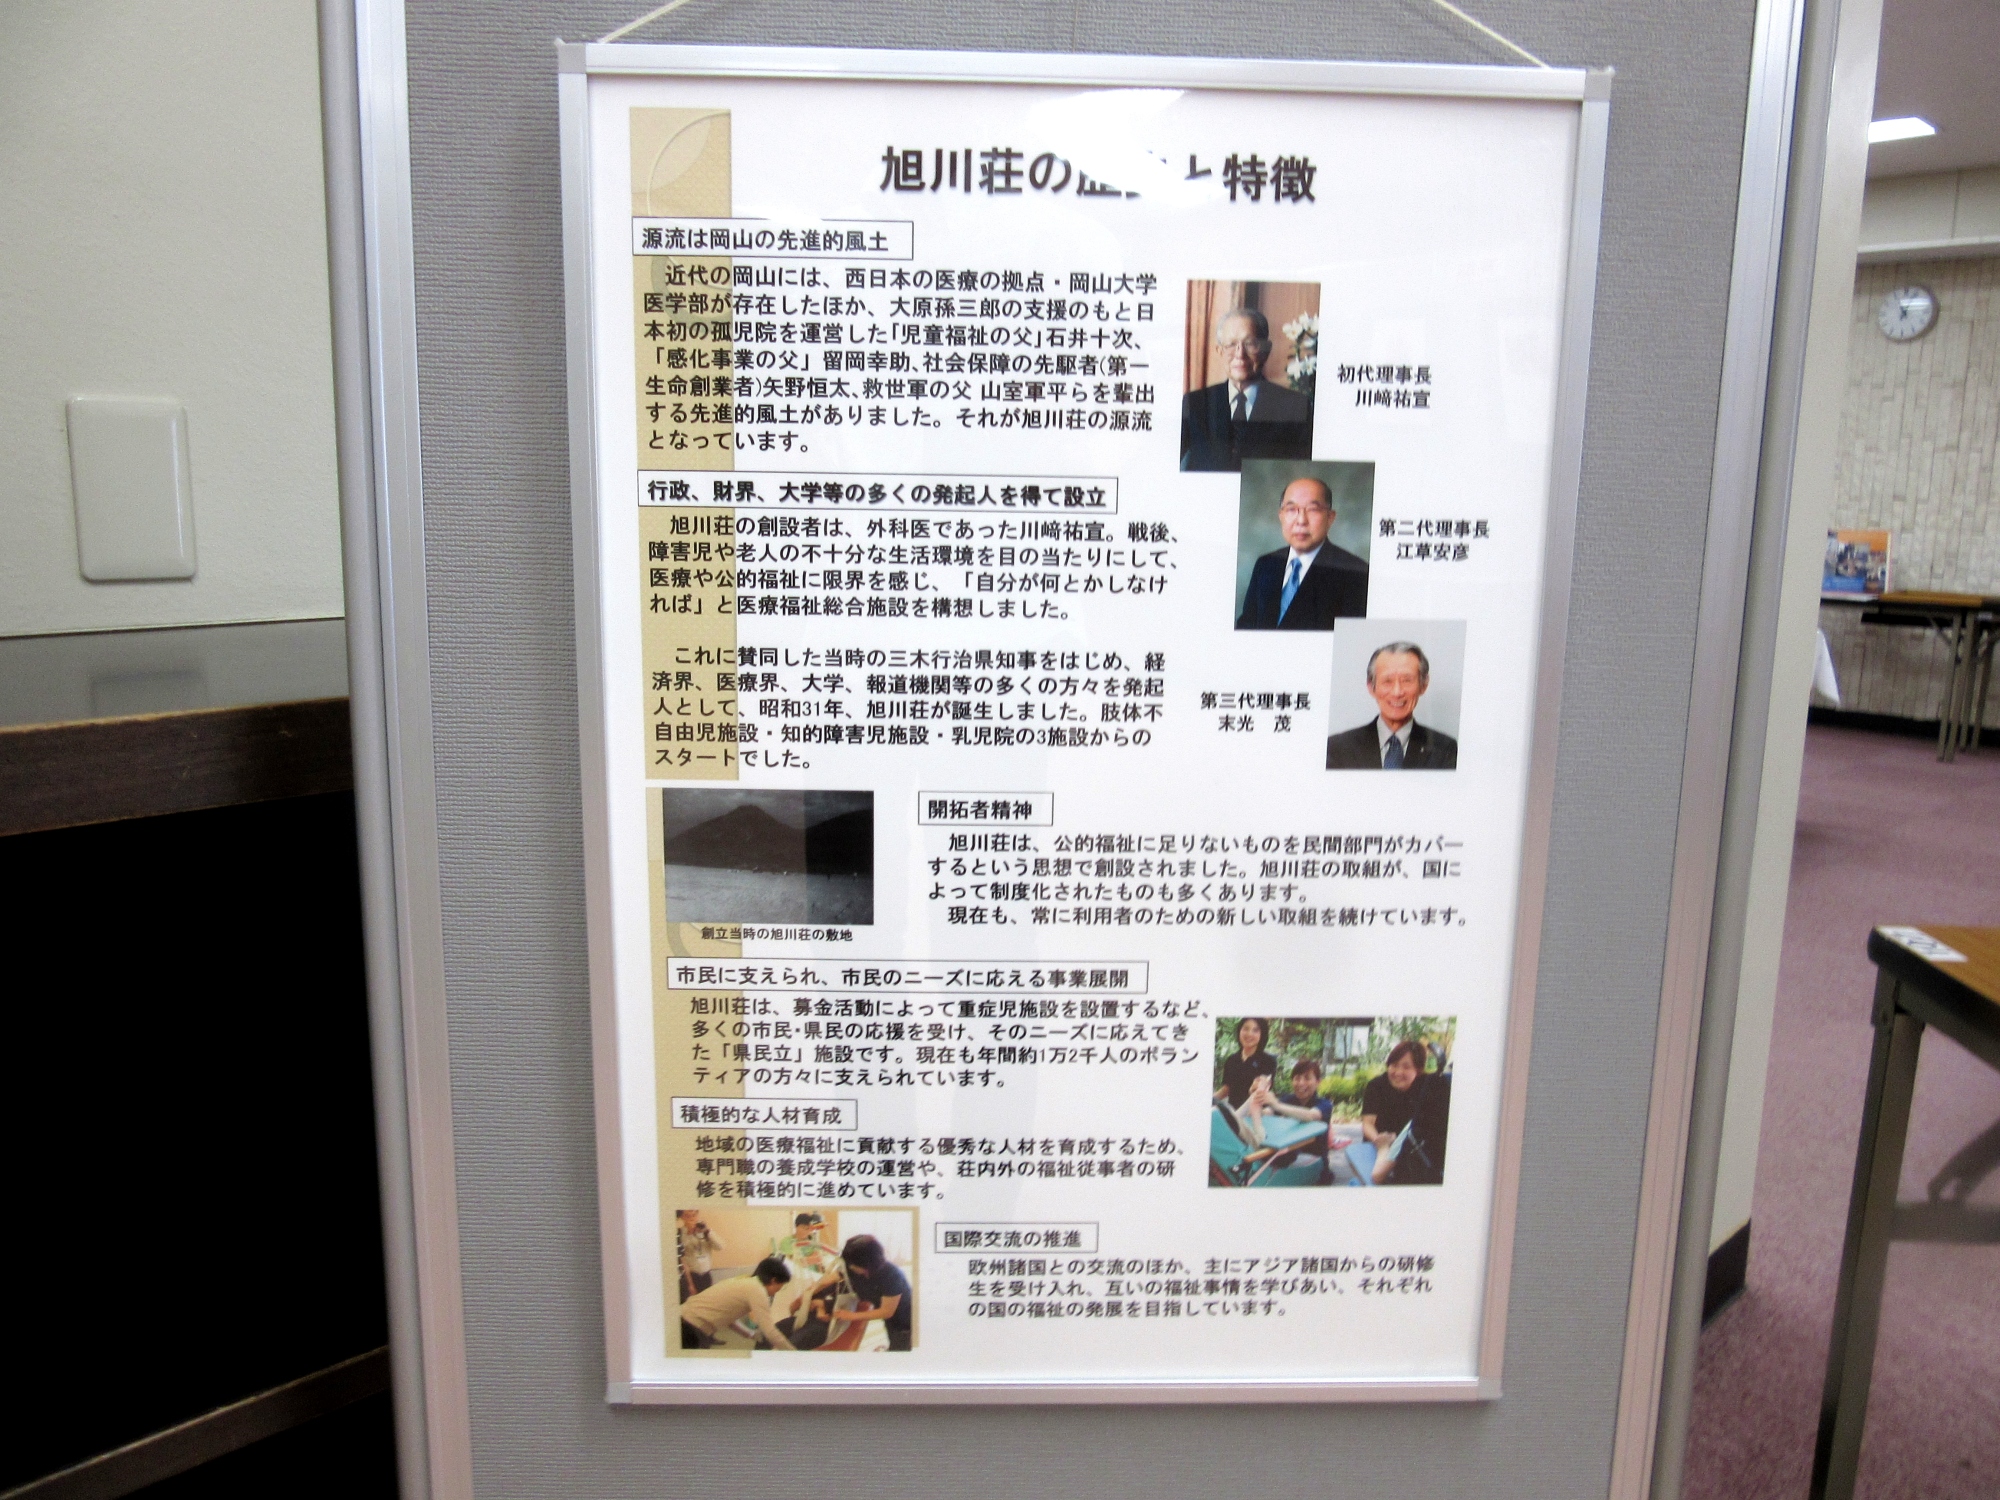 旭川荘の歴史と特徴
源流は岡山の先進的風土
近代の岡山には、西日本の医療の拠点・岡山大学
医学部が存在したほか、大原孫三郎の支援のもと日
本初の孤児院を運営した「児童福祉の父」石井十次、
「感化事業の父」留岡幸助、社会保障の先駆者(第一
生命創業者)矢野恒太、救世軍の父 山室軍平らを輩出
する先進的風土がありました。それが旭川荘の源流
となっています。
初代理事長
川﨑祐宣
行政、財界、大学等の多くの発起人を得て設立
旭川荘の創設者は、外科医であった川﨑祐宣。戦後、
障害児や老人の不十分な生活環境を目の当たりにして、
医療や公的福祉に限界を感じ、「自分が何とかしなけ
れば」と医療福祉総合施設を構想しました。
第二代理事長
江草安彦
これに賛同した当時の三木行治県知事をはじめ、経
済界、医療界、大学、報道機関等の多くの方々を発起
人として、昭和31年、旭川荘が誕生しました。肢体不
自由児施設・知的障害児施設・乳児院の3施設からの
スタートでした。
第三代理事長
末光 茂
創立当時の旭川荘の敷地
開拓者精神
旭川荘は、公的福祉に足りないものを民間部門がカバー
するという思想で創設されました。旭川荘の取組が、国に
よって制度化されたものも多くあります。
現在も、常に利用者のための新しい取組を続けています。
市民に支えられ、市民のニーズに応える事業展開
旭川荘は、募金活動によって重症児施設を設置するなど、
多くの市民・県民の応援を受け、そのニーズに応えてき
た「県民立」施設です。現在も年間約1万2千人のボラン
ティアの方々に支えられています。
積極的な人材育成
地域の医療福祉に貢献する優秀な人材を育成するため、
専門職の養成学校の運営や、荘内外の福祉従事者の研
修を積極的に進めています。
国際交流の推進
欧州諸国との交流のほか、主にアジア諸国からの研修
生を受け入れ、互いの福祉事情を学びあい、それぞれ
の国の福祉の発展を目指しています。